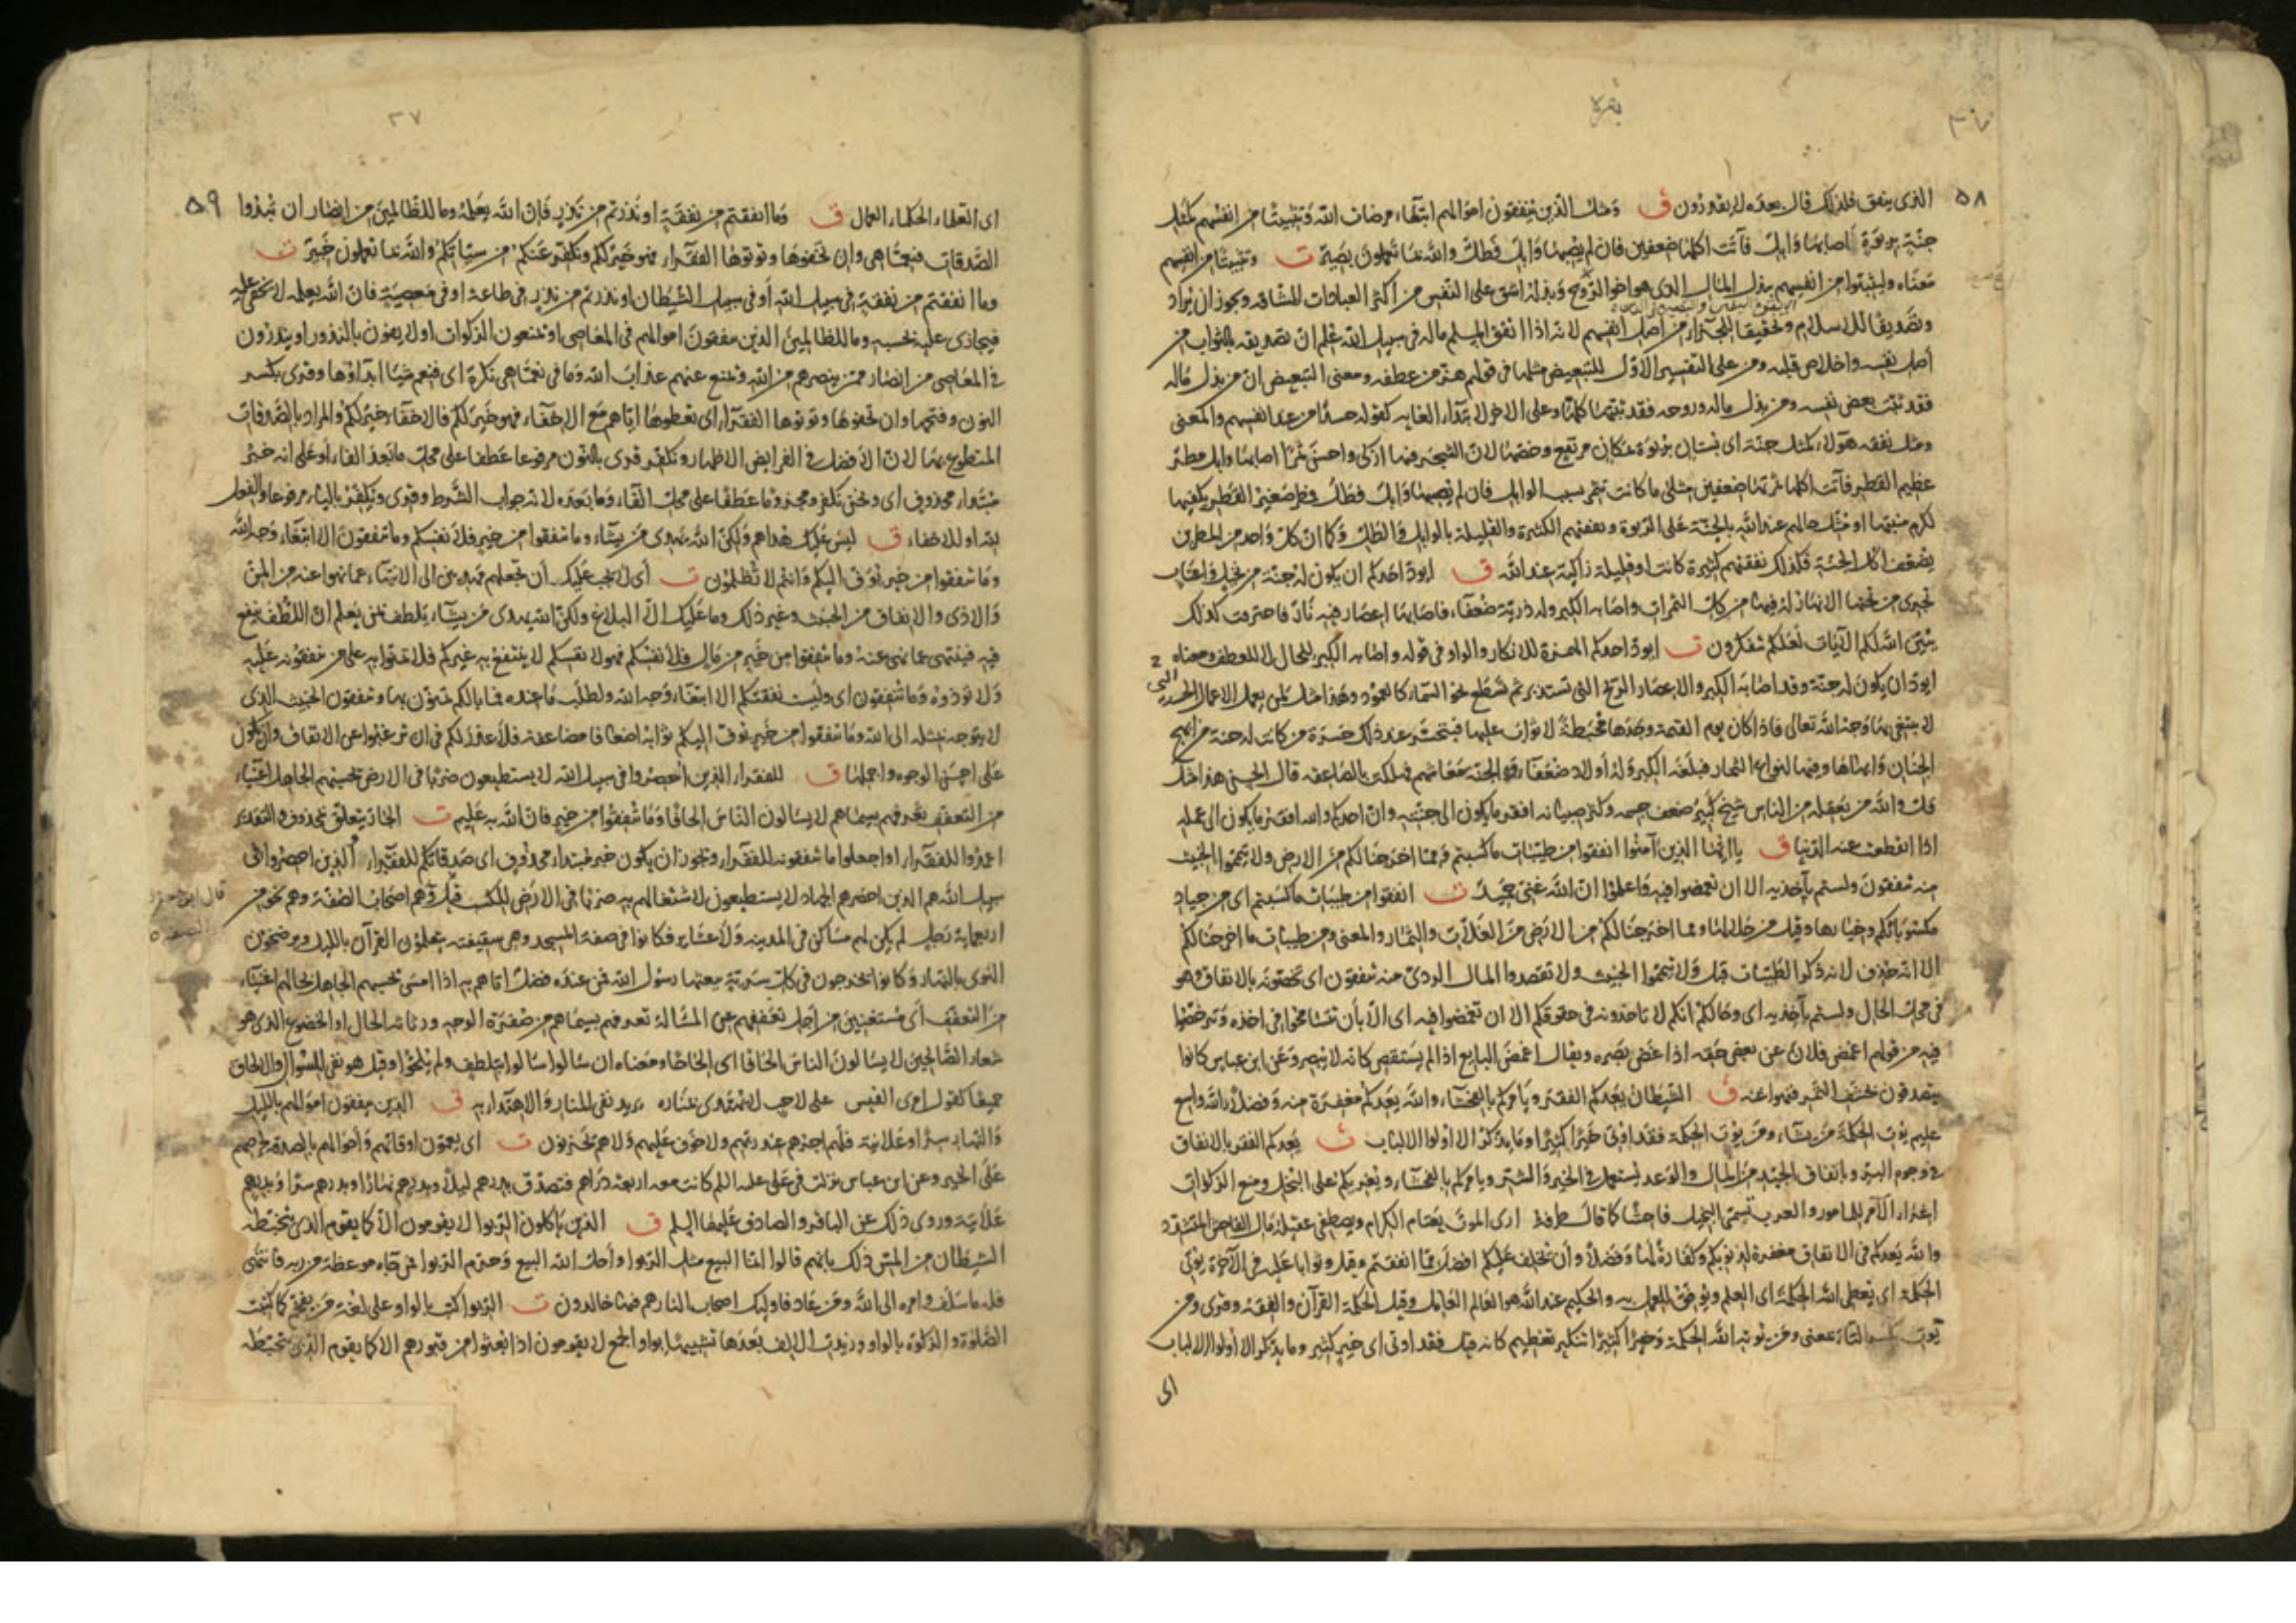 بقره
٥٨
الذى ينفق فلذلك قال بعده لا يقدرون ق ومثل الذين ينفقون اموالهم ابتغاء مرضات الله وتثبيتا من انفسهم كمثل
جنة بربوة اصابها وابل فآتت اكلها ضعفين فان لم يصبها وابل فطل والله بما تعملون بصير ت وتثبيتا من انفسهم
معناه وليثبتوا من انفسهم ببذل المال الذى هو اخو الروح وبذله اشق على النفس من اكثر العبادات الشاقه ويجوز ان يراد
وتصديقا للاسلام وتحقيقا للجزاء من اصل انفسهم لانه اذا انفق المسلم ماله فى سبيل الله علم ان تصديقه بالثواب من
اصل نفسه واخلاص قلبه ومن على التفسير الاول للتبعيض مثلها فى قولهم هز من عطفه ومعنى التبعيض ان من بذل ماله
فقد ثبت بعض نفسه ومن بذل ماله وروحه فقد ثبتها كلها وعلى الاخر لابتداء الغايه كقوله حسدا من عند انفسهم والمعنى
ومثل نفقه هؤلاء كمثل جنة اى بستان بربوة بمكان مرتفع وخصها لان الشجر فيها ازكى واحسن ثمرا اصابها وابل مطر
عظيم القطر فآتت اكلها ثمرتها ضعفين مثلى ما كانت تثمر بسبب الوابل فان لم يصبها وابل فطل فمطر صغير القطر يكفيها
لكرم منبتها او مثل حالهم عند الله بالجنة على الربوة ونفقتهم الكثيرة والقليلة بالوابل والطل وكما ان كل واحد من المطرين
يضعف اكل الجنة فكذلك نفقتهم كثيرة كانت او قليلة زاكية عند الله ق ايود احدكم ان يكون له جنة من نخيل واعناب
تجرى من تحتها الانهار له فيها من كل الثمرات واصابه الكبر وله ذرية ضعفاء فاصابها اعصار فيه نار فاحترقت كذلك
يبين الله لكم الآيات لعلكم تتفكرون ت ايود احدكم الهمزة للانكار والواو فى قوله واصابه الكبر للحال لا للعطف ومعناه
ايود ان يكون له جنة وقد اصابه الكبر والاعصار الريح التى تستدير ثم تسطع نحو السماء كالعمود وهذا مثل لمن يعمل الاعمال الحسنة
لا يبتغى بها وجه الله تعالى فاذا كان يوم القيمة وجدها محبطة لا ثواب عليها فيتحسر عند ذلك حسرة من كانت له جنة من ابهج
الجنان وابهاها وفيها انواع الثمار فبلغه الكبر وله اولاد ضعفاء والجنة معاشهم فهلكت بالصاعقه قال الحسن هذا مثل
قل والله من يعقله من الناس شيخ كبير ضعف جسمه وكثر صبيانه افقر ما يكون الى جنته وان احدكم والله افقر ما يكون الى عمله
اذا انقطعت عنه الدنيا ق يا ايها الذين آمنوا انفقوا من طيبات ما كسبتم ومما اخرجنا لكم من الارض ولا تيمموا الخبيث
منه تنفقون ولستم بآخذيه الا ان تغمضوا فيه واعلموا ان الله غنى حميد ت انفقوا من طيبات ما كسبتم اى من جياد
مكسوباتكم وخيارها وقيل من حلالها ومما اخرجنا لكم من الارض من الغلات والثمار والمعنى ومن طيبات ما اخرجنا لكم
الا انه حذف لانه ذكر الطيبات قبل ولا تيمموا الخبيث ولا تقصدوا المال الردى منه تنفقون اى تخصونه بالانفاق وهو
فى محل الحال ولستم بآخذيه اى وحالكم انكم لا تاخذونه فى حقوقكم الا ان تغمضوا فيه اى الا بأن تتسامحوا فى اخذه وتترخصوا
فيه من قولهم اغمض فلان عن بعض حقه اذا غض بصره ويقال اغمض البايع اذا لم يستقص كانه لا يبصر وعن ابن عباس كانوا
يتصدقون بحشف التمر فنهوا عنه ق الشيطان يعدكم الفقر ويأمركم بالفحشاء والله يعدكم مغفرة منه وفضلا والله واسع
عليم يؤتى الحكمة من يشاء ومن يؤت الحكمة فقد اوتى خيرا كثيرا وما يذكر الا اولوا الالباب ت يعدكم الفقر بالانفاق
فى وجوه البر وبانفاق الجيد من المال والوعد يستعمل فى الخير والشر ويامركم بالفحشاء ويغريكم على البخل ومنع الزكوات
اغراء الآمر للمامور والعرب تسمى البخيل فاحشا كما قال طرفة ارى الموت يعتام الكرام ويصطفى عقيلة مال الفاحش المتشدد
والله يعدكم فى الانفاق مغفرة لذنوبكم وكفارة لها وفضلا وأن يخلف عليكم افضل مما انفقتم وقيل وثوابا عليه فى الآخرة يؤتى
الحكمة اى يعطى الله الحكمة اى العلم ويوفق للعمل به والحكيم عند الله هو العالم العامل وقيل الحكمة القرآن والفقه وقرى ومن
يؤت بكسر التاء بمعنى ومن يؤتيه الله الحكمة وخيرا كثيرا تنكير تعظيم كانه قيل فقد اوتى اى خير كثير وما يذكر الا اولوا الالباب
اى
٣٧
٥٩
اى العلماء الحكماء العمال ق وما انفقتم من نفقة او نذرتم من نذر فان الله يعلمه وما للظالمين من انصار ان تبدوا
الصدقات فنعما هى وان تخفوها وتؤتوها الفقراء فهو خير لكم ونكفر عنكم من سيئاتكم والله بما تعملون خبير ت
وما انفقتم من نفقة فى سبيل الله أو فى سبيل الشيطان او نذرتم من نذر فى طاعة او فى معصية فان الله يعلمه لا يخفى عليه
فيجازى عليه بحسبه وما للظالمين الذين ينفقون اموالهم فى المعاصى او يمنعون الزكوات او لا يوفون بالنذور او ينذرون
فى المعاصى من انصار ممن ينصرهم من الله ويمنع عنهم عذاب الله وما فى نعما هى نكرة اى فنعم شيئا ابداؤها وقرى بكسر
النون وفتحها وان تخفوها وتؤتوها الفقراء اى تعطوها اياهم مع الاخفاء فهو خير لكم فالاخفاء خير لكم والمراد بالصدقات
المتطوع بها لان الافضل فى الفرايض الاظهار ونكفر قرى بالنون مرفوعا عطفا على محل ما بعد الفاء او على انه خبر
مبتداء محذوف اى ونحن نكفر ومجزوما عطفا على محل الفاء وما بعده لانه جواب الشرط وقرى ويكفر بالياء مرفوعا والفعل
لله او للاخفاء ق ليس عليك هداهم ولكن الله يهدى من يشاء وما تنفقوا من خير فلانفسكم وما تنفقون الا ابتغاء وجه الله
وما تنفقوا من خير يوف اليكم وانتم لا تظلمون ت أى لا يجب عليك أن تجعلهم مهديين الى الانتهاء عما نهوا عنه من المن
والاذى والانفاق من الخبيث وغير ذلك وما عليك الا البلاغ ولكن الله يهدى من يشاء يلطف بمن يعلم ان اللطف ينفع
فيه فينتهى عما نهى عنه وما تنفقوا من خير من مال فلأنفسكم فهو لانفسكم لا ينتفع به غيركم فلا تمنوا به على من تنفقونه عليه
ولا تؤذوه وما تنفقون اى وليست نفقتكم الا ابتغاء وجه الله ولطلب ما عنده فما بالكم تمنون بها وتنفقون الخبيث الذى
لا يتوجه بمثله الى الله وما تنفقوا من خير يوف اليكم ثوابه اضعافا مضاعفه فلا عذر لكم فى ان ترغبوا عن الانفاق وان يكون
على احسن الوجوه واجملها ق للفقراء الذين أحصروا فى سبيل الله لا يستطيعون ضربا فى الارض يحسبهم الجاهل اغنياء
من التعفف تعرفهم بسيماهم لا يسألون الناس الحافا وما تنفقوا من خير فان الله به عليم ت الجار يتعلق بمحذوف والتقدير
اعمدوا للفقراء او اجعلوا ما تنفقونه للفقراء ويجوز ان يكون خبر مبتداء محذوف اى صدقاتكم للفقراء الذين احصروا فى
سبيل الله هم الذين احصرهم الجهاد لا يستطيعون لاشتغالهم به ضربا فى الارض للكسب قيل وهم اصحاب الصفة وهم نحو من
اربعماية رجل لم يكن لهم مساكن فى المدينه ولا عشاير فكانوا فى صفة المسجد وهى سقيفته يتعلمون القرآن بالليل ويرضخون
النوى بالنهار وكانوا يخرجون فى كل سرية بعثها رسول الله فمن عنده فضل اتاهم به اذا امسى يحسبهم الجاهل بحالهم اغنياء
من التعفف أى مستغنين من اجل تعففهم عن المسألة تعرفهم بسيماهم من صفرة الوجه ورثاثة الحال او الخضوع الذى هو
شعار الصالحين لا يسألون الناس الحافا اى الحاحا ومعناه ان سألوا سألوا بتلطف ولم يلحوا وقيل هو نفى للسؤال والالحاف
جميعا كقول امرى القيس على لاحب لا يهتدى بمناره يريد نفى المنار والاهتداء به ق الذين ينفقون اموالهم بالليل
والنهار سرا وعلانية فلهم اجرهم عند ربهم ولا خوف عليهم ولا هم يحزنون ت اى يعمون اوقاتهم وأحوالهم بالصدقة لحرصهم
على الخير وعن ابن عباس نزلت فى على عليه السلم كانت معه اربعة دراهم فتصدق بدرهم ليلا وبدرهم نهارا وبدرهم سرا وبدرهم
علانية وروى ذلك عن الباقر والصادق عليهما السلم ق الذين يأكلون الربوا لا يقومون الا كما يقوم الذى يتخبطه
الشيطان من المس ذلك بانهم قالوا انما البيع مثل الربوا وأحل الله البيع وحرم الربوا فمن جاءه موعظة من ربه فانتهى
فله ما سلف وامره الى الله ومن عاد فاولئك اصحاب النار هم فيها خالدون ت الربوا كتب بالواو على لغة من يفخم كما كتبت
الصلوة والزكوة بالواو وزيدت الالف بعدها تشبيها بواو الجمع لا يقومون اذا بعثوا من قبورهم الا كما يقوم الذى يتخبطه